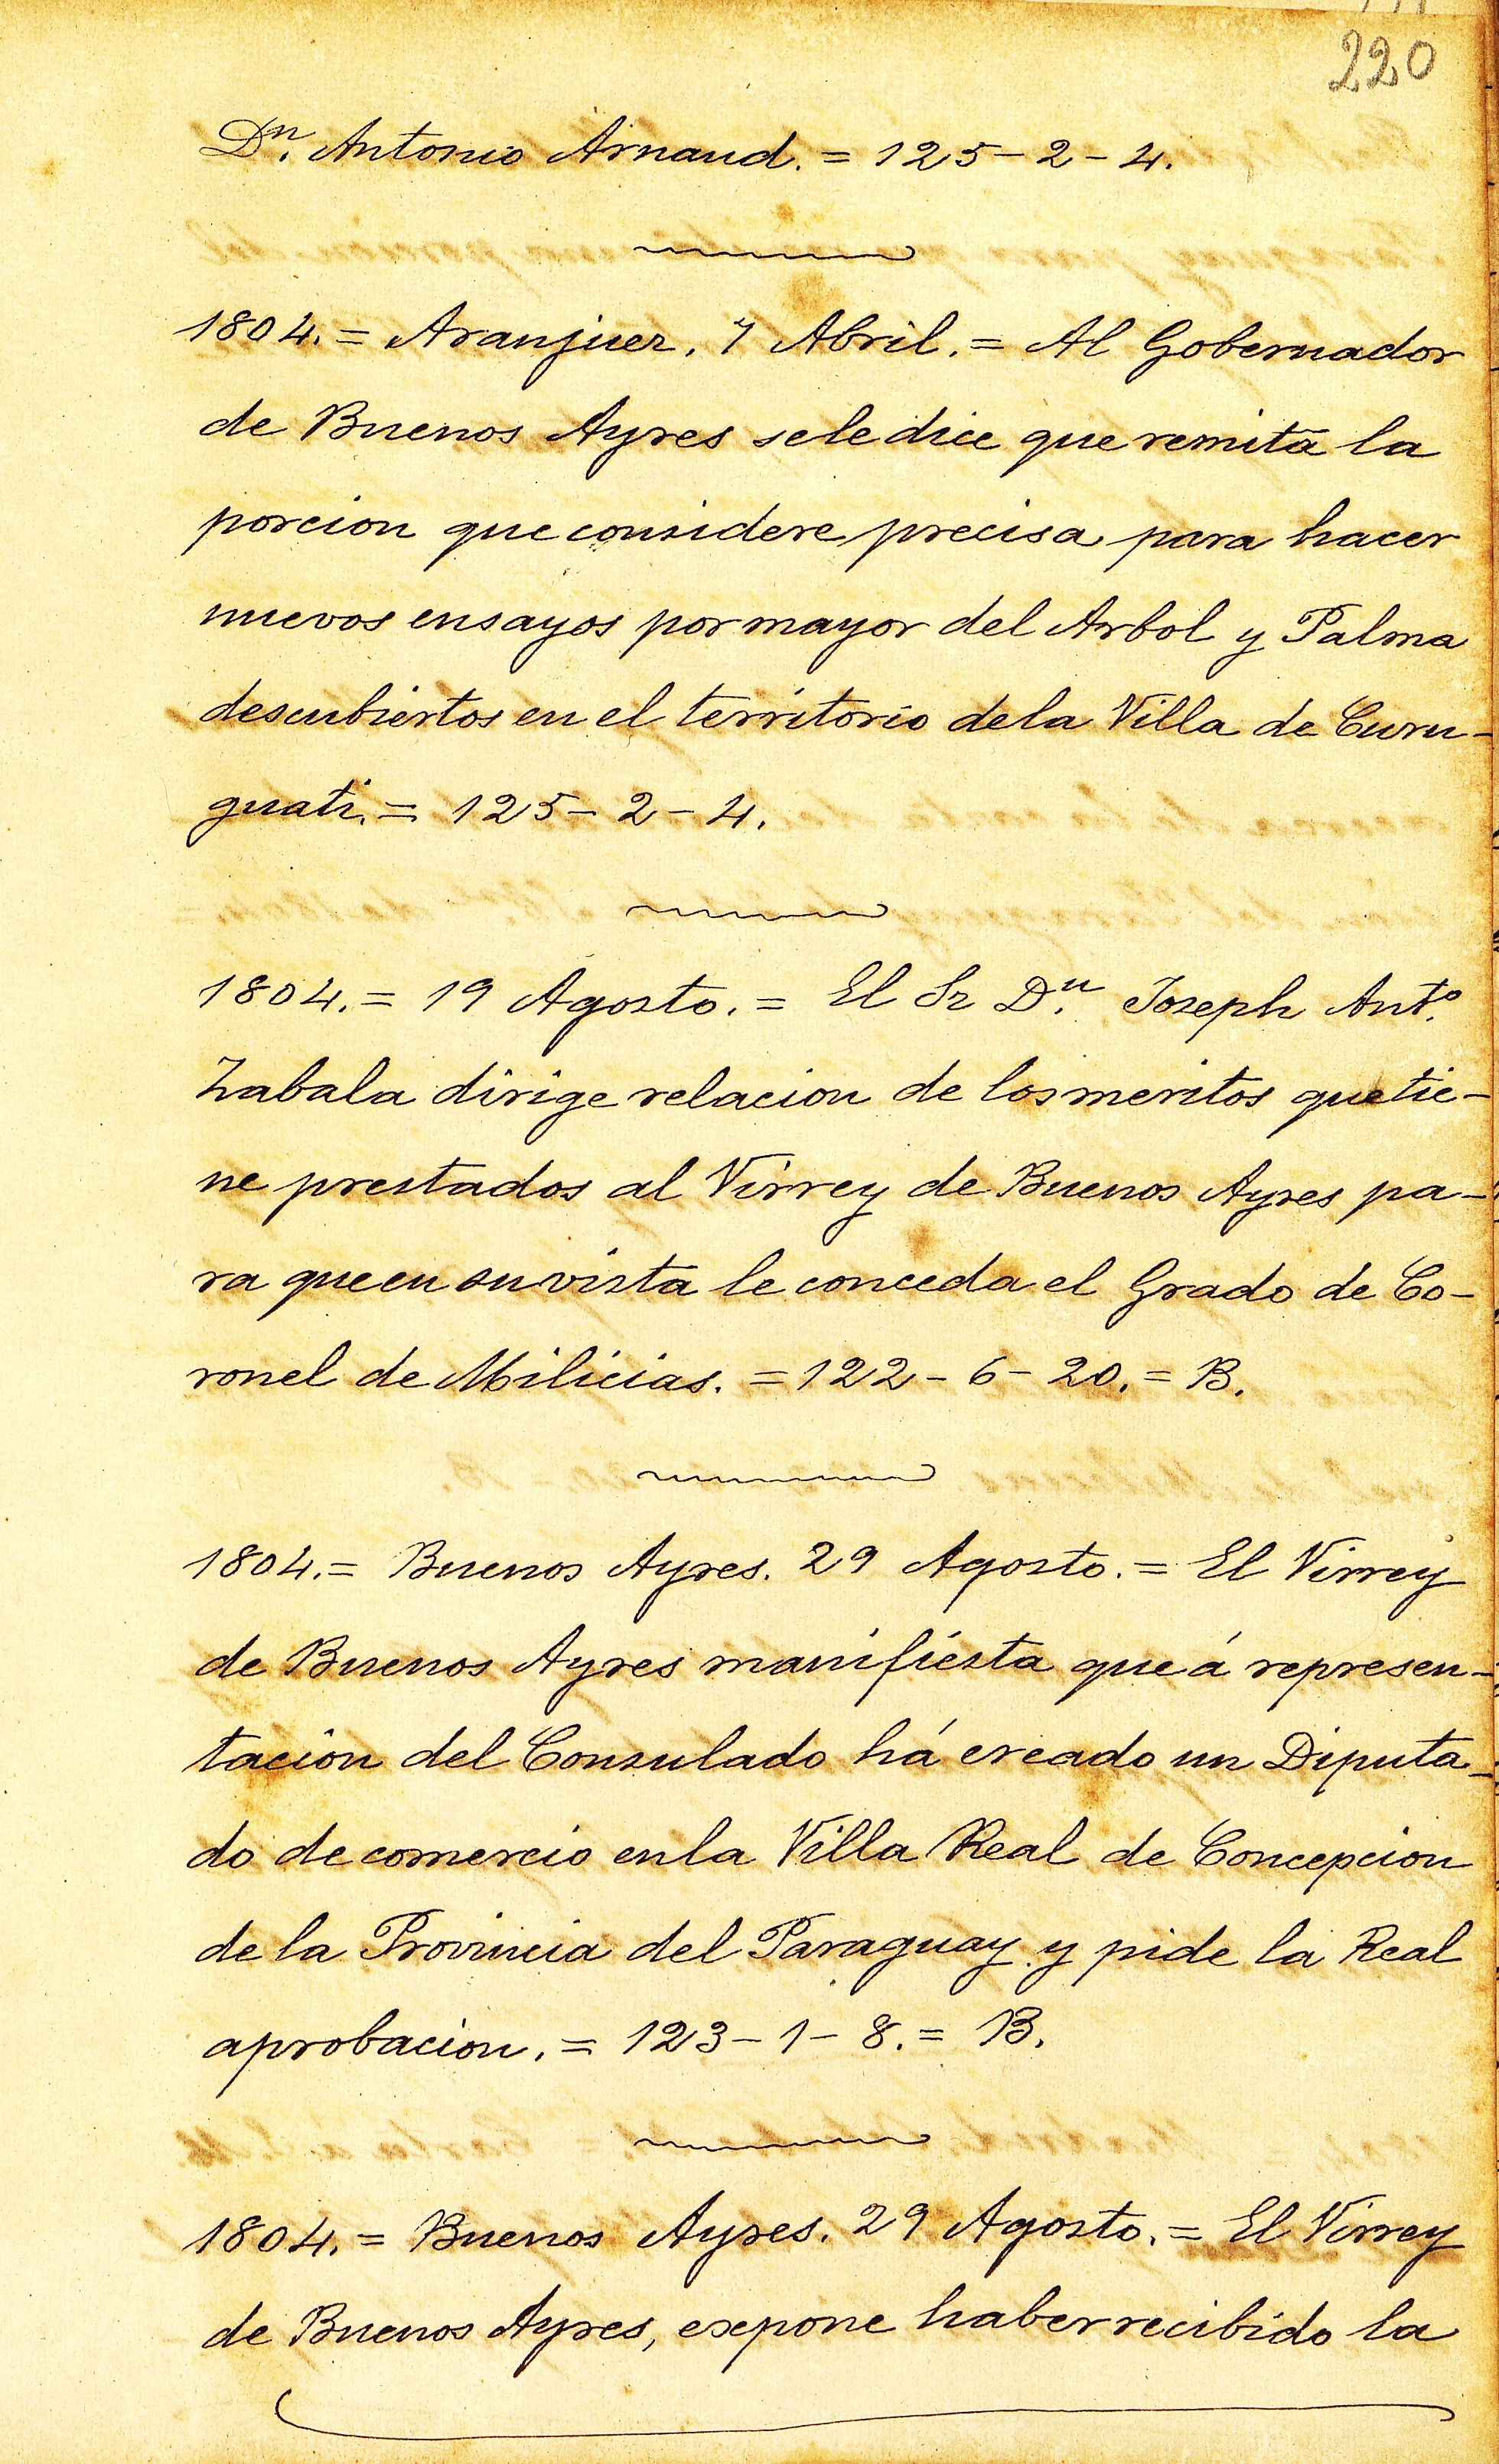 220
Dⁿ. Antonio Arnaud. = 125-2-4.
1804. = Aranjuez. 7 Abril. = Al Gobernador
de Buenos Ayres sele dice que remita la
porcion que considere precisa para hacer
nuevos ensayos por mayor del Arbol y Palma
descubiertos en el territorio dela Villa de Curu-
guati. = 125-2-4.
1804. = 19 Agosto. = El Sr Dⁿ. Joseph Antº.
Zabala dirige relacion de los meritos que tie-
ne prestados al Virrey de Buenos Ayres pa-
ra que en su vista le conceda el Grado de Co-
ronel de Milicias. = 122-6-20. = B.
1804. = Buenos Ayres. 29 Agosto. = El Virrey
de Buenos Ayres manifiesta que á represen-
tacion del Consulado há creado un Diputa-
do de comercio en la Villa Real de Concepcion
de la Provincia del Paraguay y pide la Real
aprobacion. = 123-1-8. = B.
1804. = Buenos Ayres. 29 Agosto. = El Virrey
de Buenos Ayres, expone haber recibido la